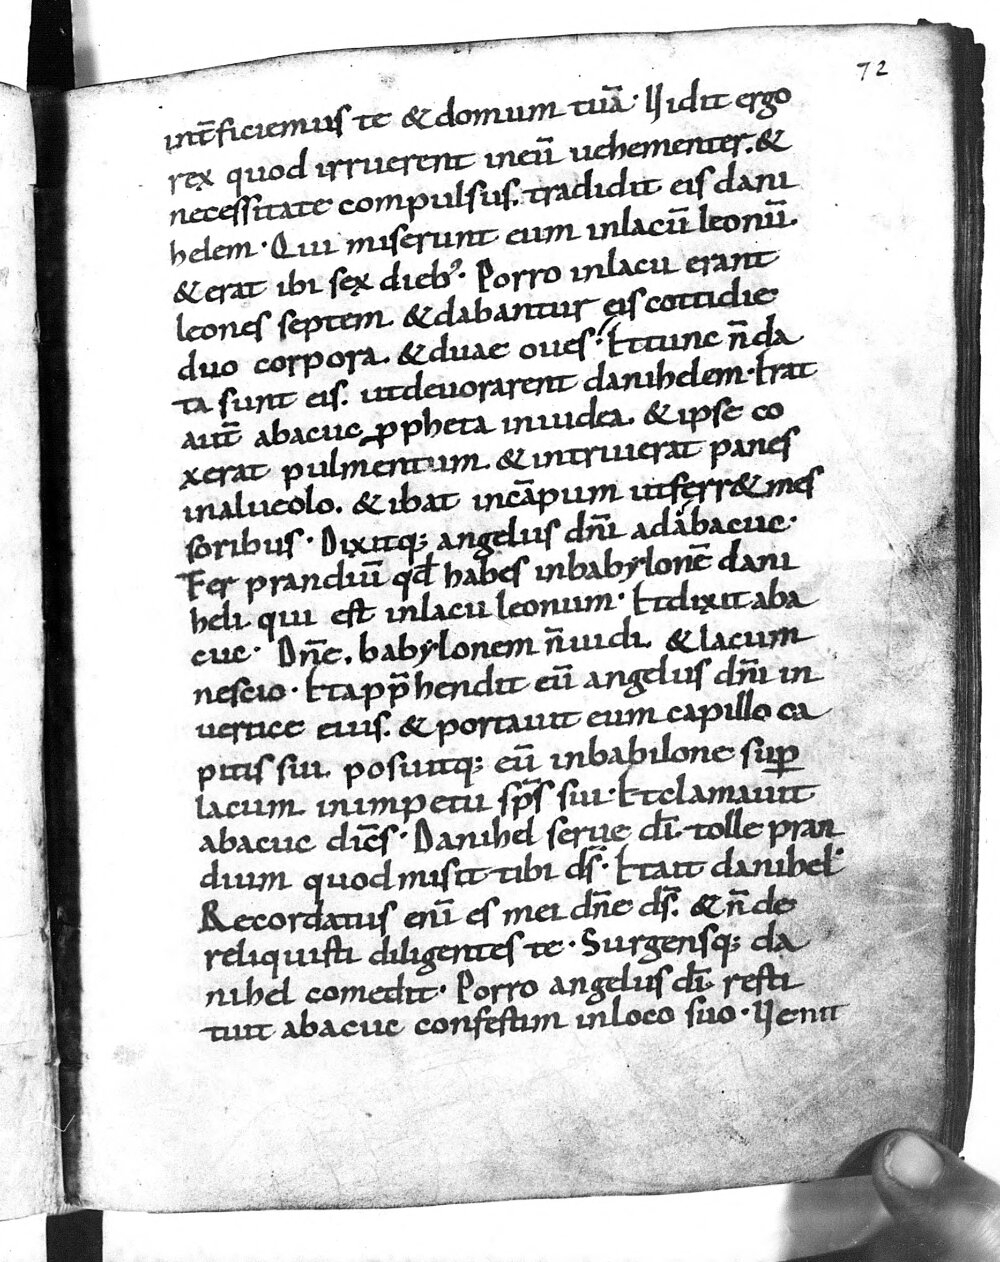 72
int̄ficiemus te & domum tuā· Uidit ergo
rex quod irruerent ineū uehementer. &
necessitate compulsus. tradidit eis dani
helem· Qui miserunt eum inlacū leonū.
& erat ibi sex dieb᾿· Porro inlacu erant
leones septem. & dabantur eis cottidie
duo corpora. & duae oues· Et tunc n̄ da
ta sunt eis. utdeuorarent danihelem· Erat
aut̄ abacuc ꝓpheta iniudea. & ipse co
xerat pulmentum. & intriuerat panes
inalueolo. & ibat incāpum utferr& mes
soribus· Dixitq; angelus dn̄i adabacuc·
Fer prandiū qd̄ habes inbabylonē dani
heli qui est inlacu leonum· Et dixit aba
cuc· Dn̄e. babylonem n̄ uidi. & lacum
nescio· Et app̄hendit eū angelus dn̄i in
uertice eius. & portauit eum capillo ca
pitis sui. posuitq; eū inbabilone suꝑ
lacum inimpetu sp̄s sui· Et clamauit
abacuc dic̄s· Danihel serue dī· tolle pran
dium quod misit tibi ds̄· Et ait danihel·
Recordatus enī es mei dn̄e ds̄. & n̄ de
reliquisti diligentes te· Surgensq; da
nihel comedit· Porro angelus dī resti
tuit abacuc confestim inloco suo· Uenit